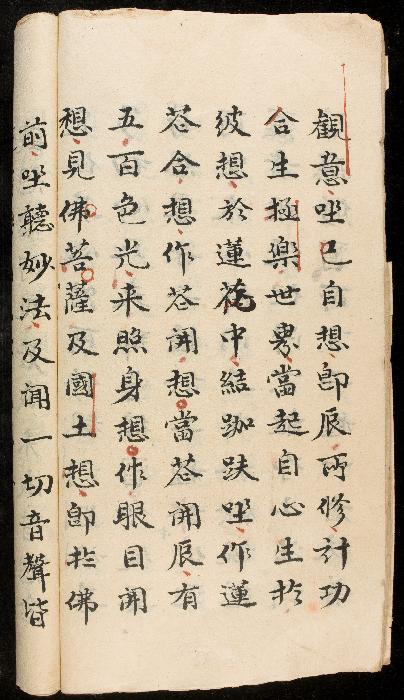 觀意坐已自想即辰所修計功
合生極樂世界當起自心生扵
彼想於蓮花中結跏趺坐作蓮
苍合想作苍開想當苍開辰有
五百色光来照身想作眼目開
想見佛菩薩及國土想即扵佛
前坐聽妙法及闻一切音聲皆